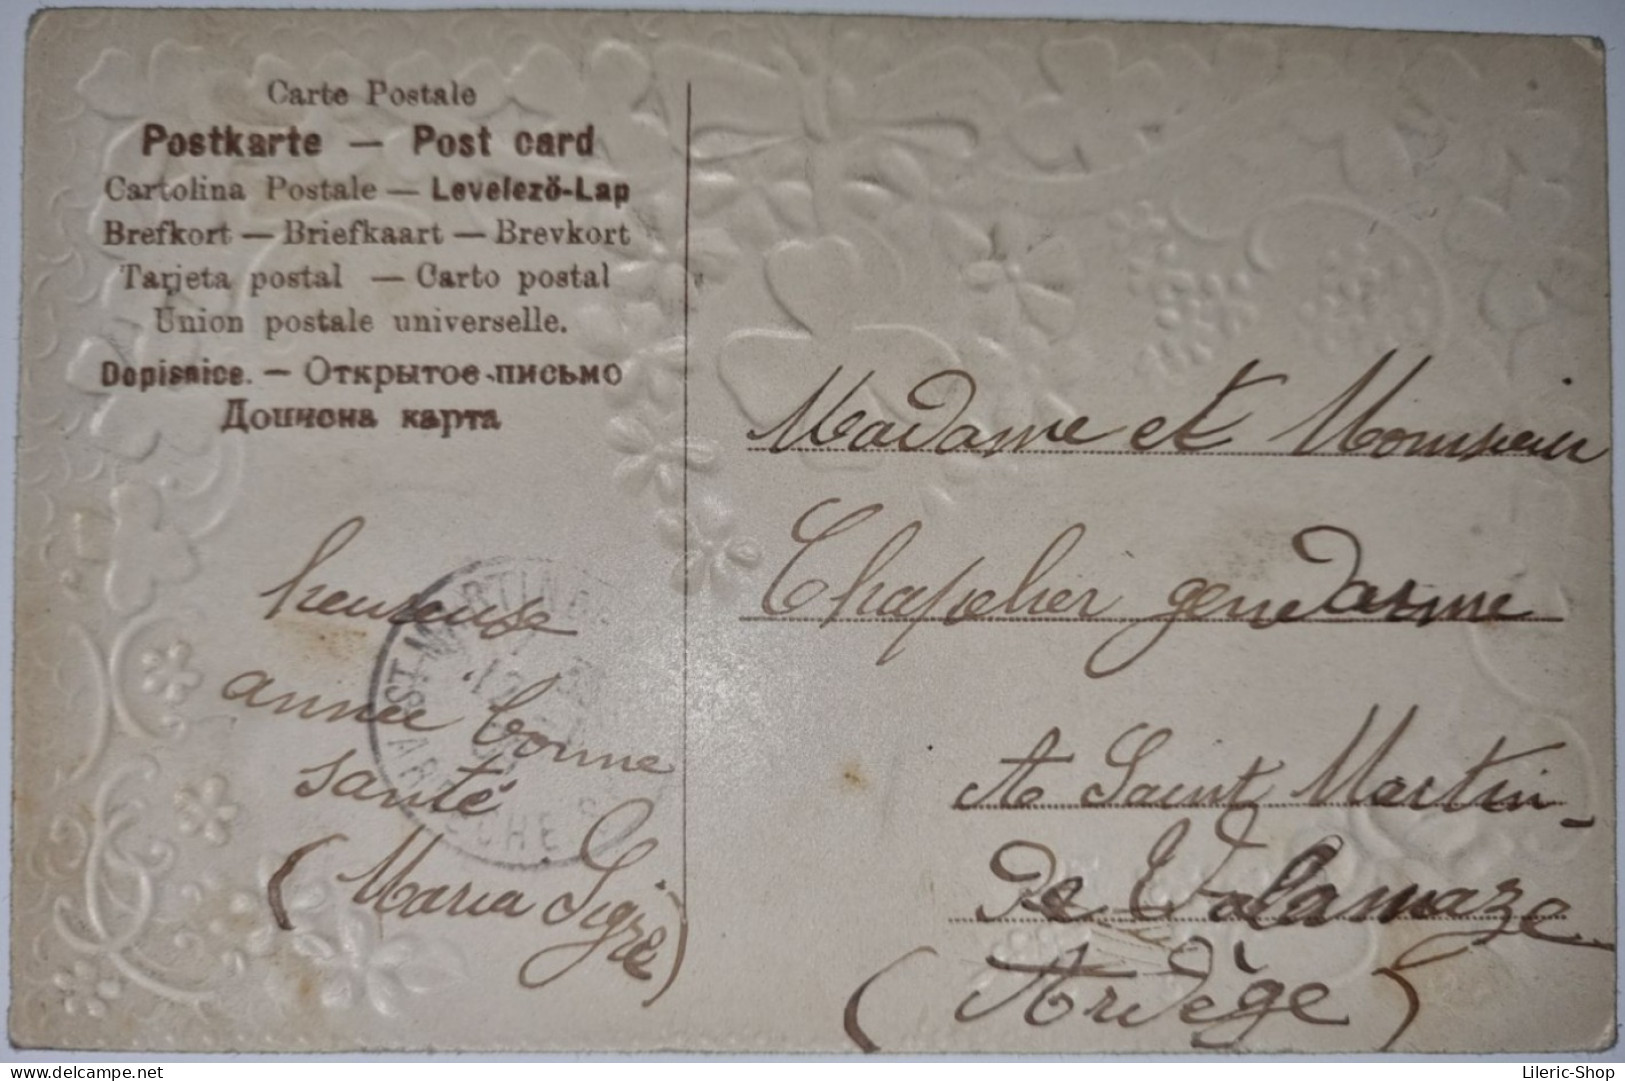 Carte Postale
Postkarte — Post card
Cartolina Postale — Levelező-Lap
Brefkort — Briefkaart — Brevkort
Tarjeta postal — Carto postal
Union postale universelle.
Dopisnice. — Открытое письмо
Дописна карта
heureuse
année bonne
santé
(Maria Sigre)
ST MARTIN
ARDECHE
Madame et Monsieur
Chapelier gendarme
A Saint Martin-
de Valamaze
(Ardège)
delcampe.net
Lileric-Shop